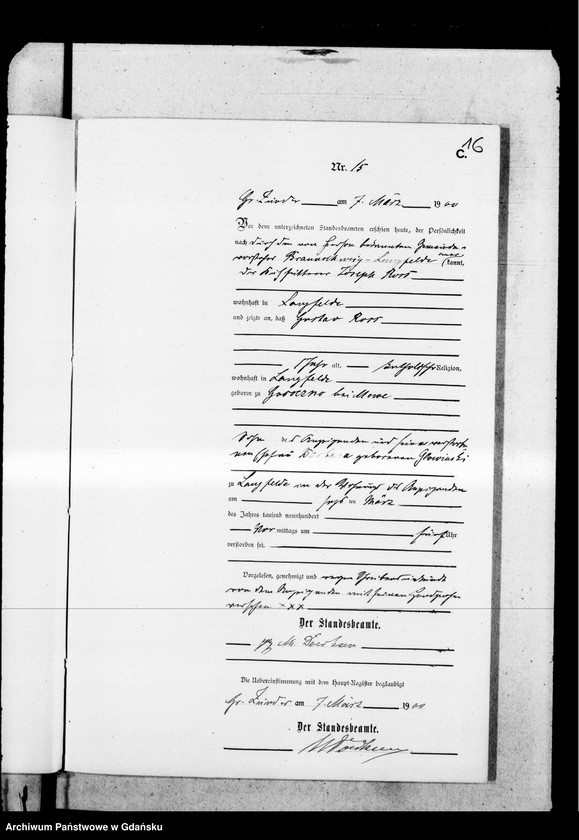 16
C.
Nr. 15
Gr. Zünder am 7. März 1900
Vor dem unterzeichneten Standesbeamten erschien heute, der Persönlichkeit
nach durch den von Person bekannten Gemeinde-
vorsteher Braunschweig-Langfelde aner
kannt,
der Joseph Roos
wohnhaft in Langfelde
und zeigte an, daß Gustav Roos
1 Jahr alt, katholischer Religion,
wohnhaft in Langfelde
geboren zu bei Mewe
Sohn des Anzeigenden und seiner verstorbe-
nen Ehefrau geborenen Glowinski
zu Langfelde in der Wohnung des Anzeigenden
am sechs ten März
des Jahres tausend neunhundert
Vor mittags um fünf Uhr
verstorben sei.
Vorgelesen, genehmigt und wegen Schreibensunkunde
von dem Anzeigenden mit seinem Handzeichen
versehen xxx
Der Standesbeamte.
gez M. Doerksen
Die Uebereinstimmung mit dem Haupt-Register beglaubigt
Gr. Zünder am 7. März 1900
Der Standesbeamte.
MDoerksen
Archiwum Państwowe w Gdańsku